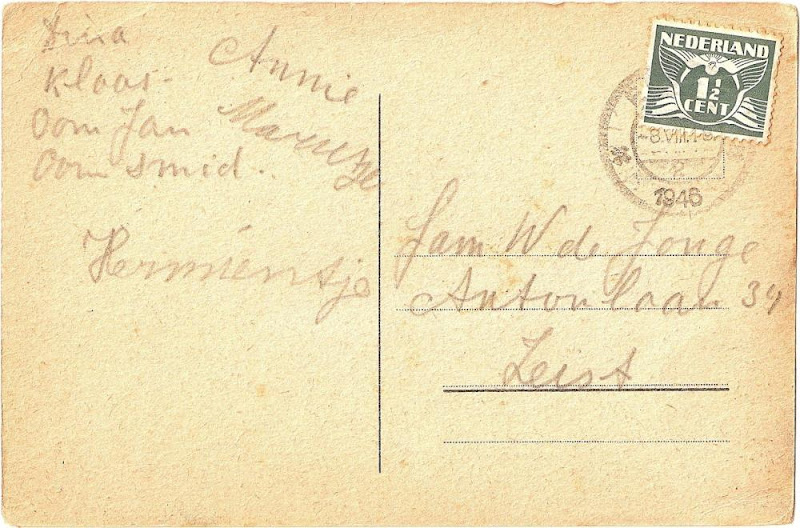 Dina
Klaas-
Oom Jan
Oom Smid.
Annie
Hermientje
NEDERLAND
1 1/2
CENT
-8.VIII.
1946
Fam W de Jonge
Antonlaan 34
Zeist